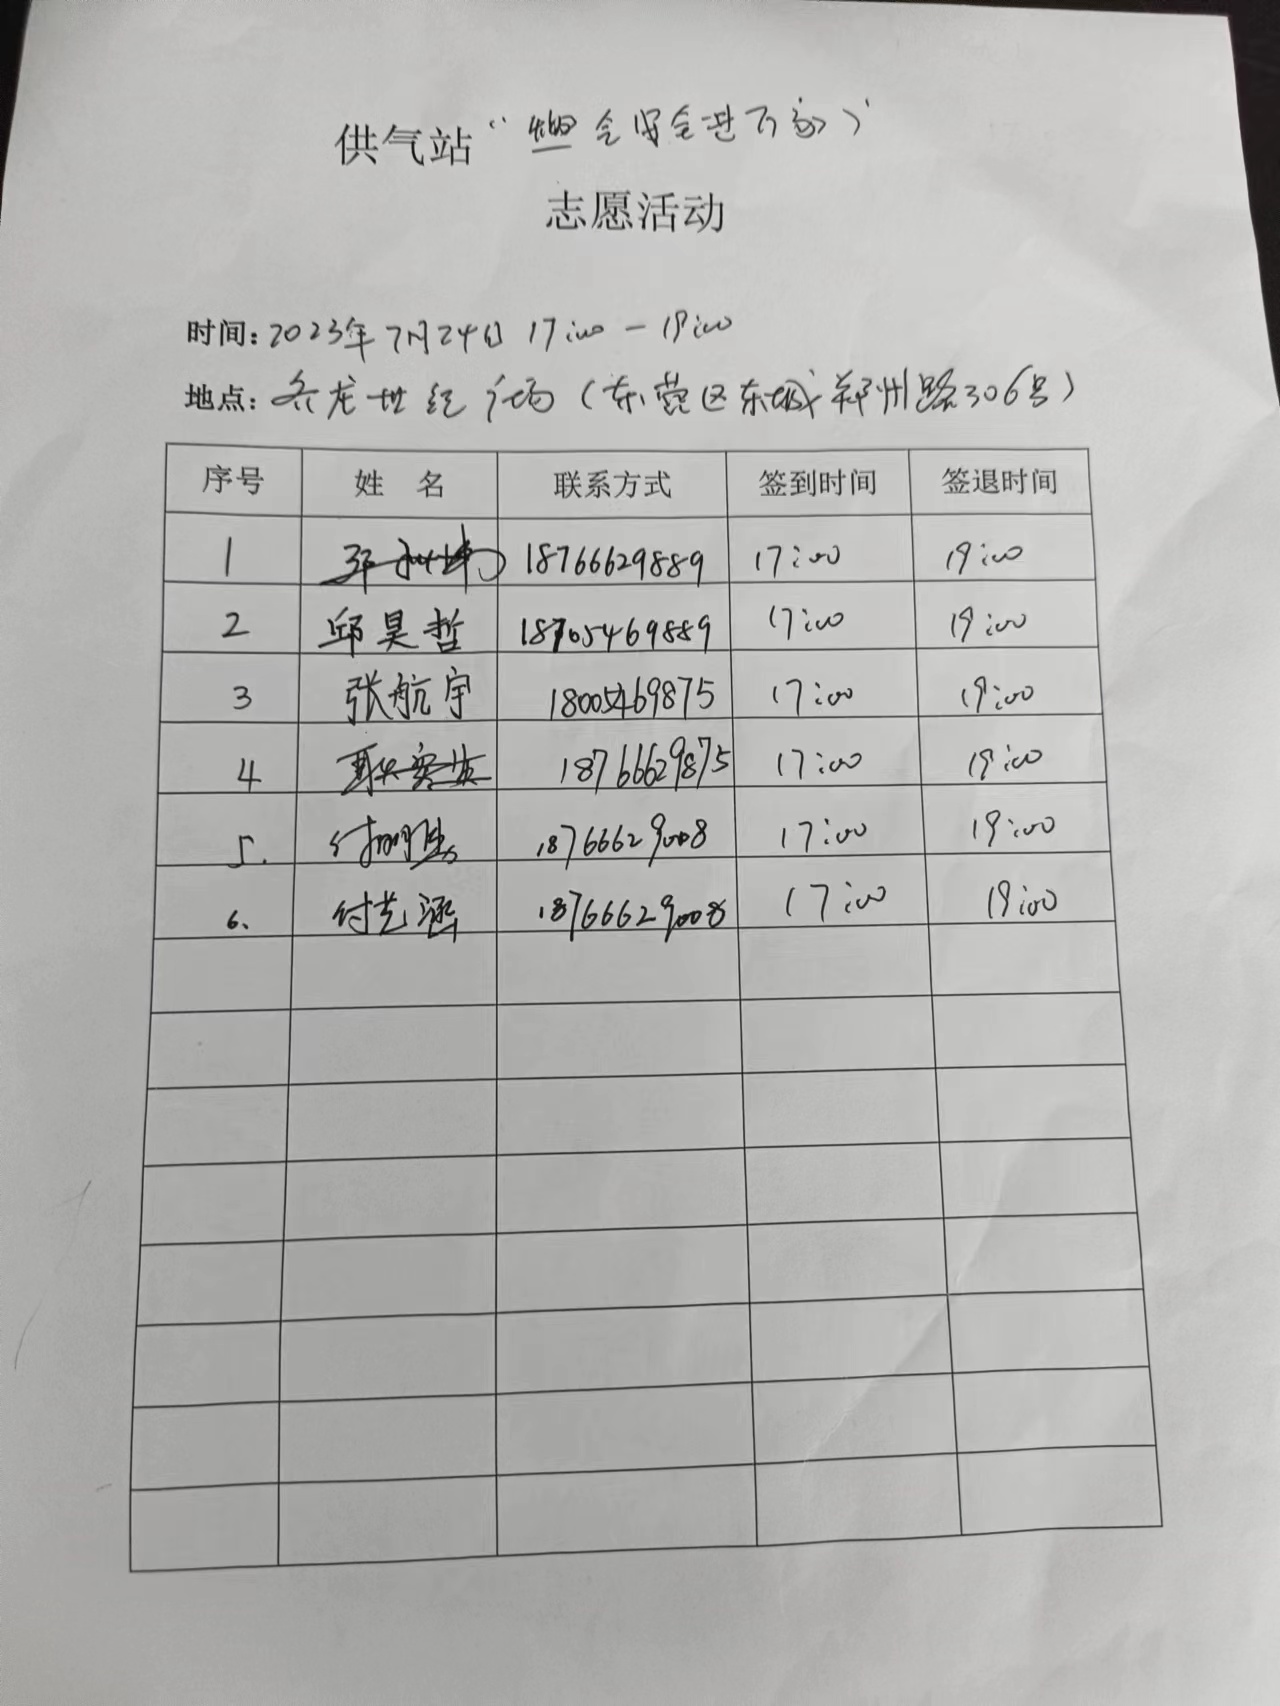 供气站“燃气安全进万家”
志愿活动
时间:2023年7月24日 17:00-19:00
地点:龙世纪广场(东营区东城郑州路306号)
序号 姓 名 联系方式 签到时间 签退时间
1 18766629889 17:00 19:00
2 邱昊哲 18705469889 17:00 19:00
3 张航宇 18005469875 17:00 19:00
4 18766629875 17:00 19:00
5. 付 18766629008 17:00 19:00
6. 付艺涵 18766629008 17:00 19:00